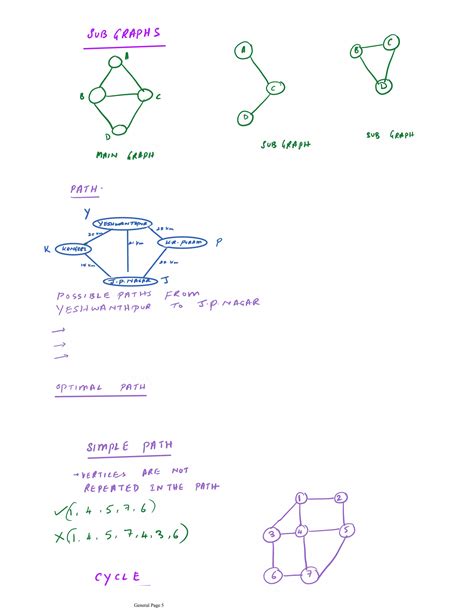 SUB GRAPHS
A
B
C
D
MAIN GRAPH
A
C
D
SUB GRAPH
B
C
D
SUB GRAPH
PATH-
Y
YESHWANTHPUR
K
KR. PURAM
P
J.P. NAGAR
J
POSSIBLE PATHS FROM
YESHWANTHPUR TO J.P. NAGAR
→
→
→
OPTIMAL PATH
SIMPLE PATH
→VERTICES ARE NOT
REPEATED IN THE PATH
✓(1, 4, 5, 7, 6)
X(1, 4, 5, 7, 4, 3, 6)
1
2
3
4
5
6
7
CYCLE
General Page 5